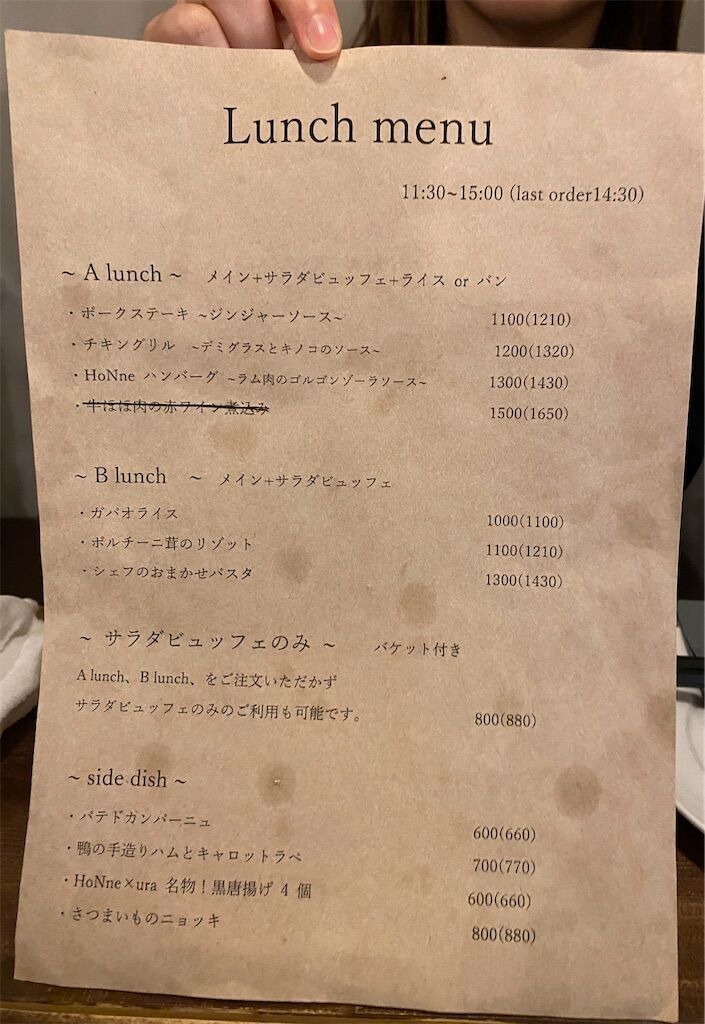 Lunch menu
11:30~15:00 (last order14:30)
~ A lunch ~ メイン+サラダビュッフェ+ライス or パン
・ポークステーキ ~ジンジャーソース~ 1100(1210)
・チキングリル ~デミグラスとキノコのソース~ 1200(1320)
・HoNne ハンバーグ ~ラム肉のゴルゴンゾーラソース~ 1300(1430)
・牛ほほ肉の赤ワイン煮込み 1500(1650)
~ B lunch ~ メイン+サラダビュッフェ
・ガパオライス 1000(1100)
・ポルチーニ茸のリゾット 1100(1210)
・シェフのおまかせパスタ 1300(1430)
~ サラダビュッフェのみ ~ バケット付き
A lunch、B lunch、をご注文いただかず
サラダビュッフェのみのご利用も可能です。 800(880)
~ side dish ~
・パテドカンパーニュ 600(660)
・鴨の手造りハムとキャロットラペ 700(770)
・HoNne×ura 名物！黒唐揚げ 4 個 600(660)
・さつまいものニョッキ 800(880)